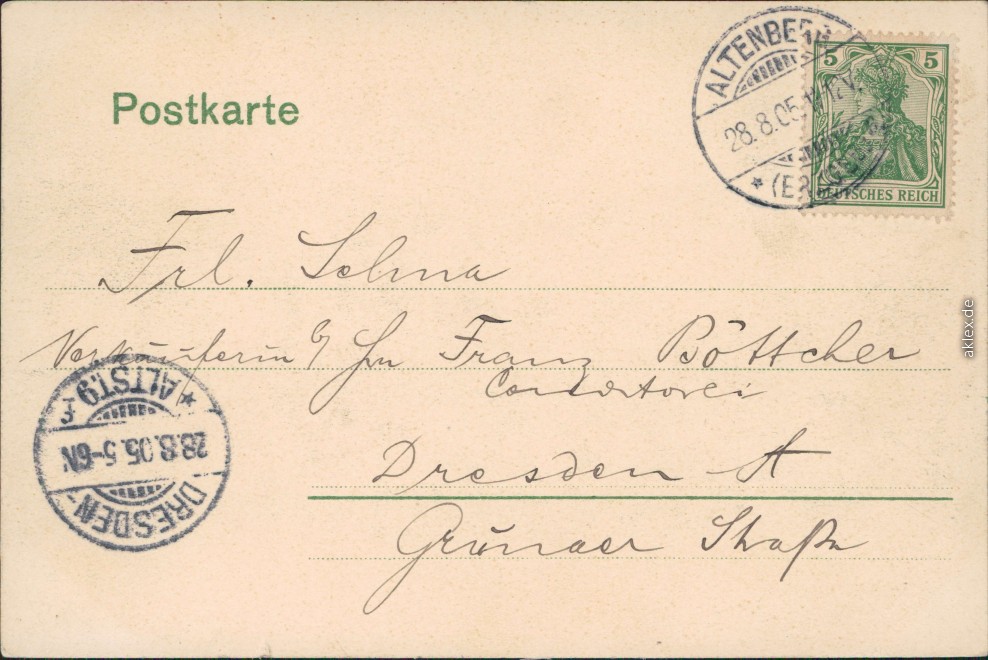 Postkarte
ALTENBERG
28.8.05.
* (ERZGEB.)
5 5
DEUTSCHES REICH
Frl. Selma
Verkäuferin b/ Hn Franz Böttcher
Conditorei
Dresden A
Grunaer Straße
DRESDEN-
28.8.05. 5-6N
* ALTST.9 f
aklex.de